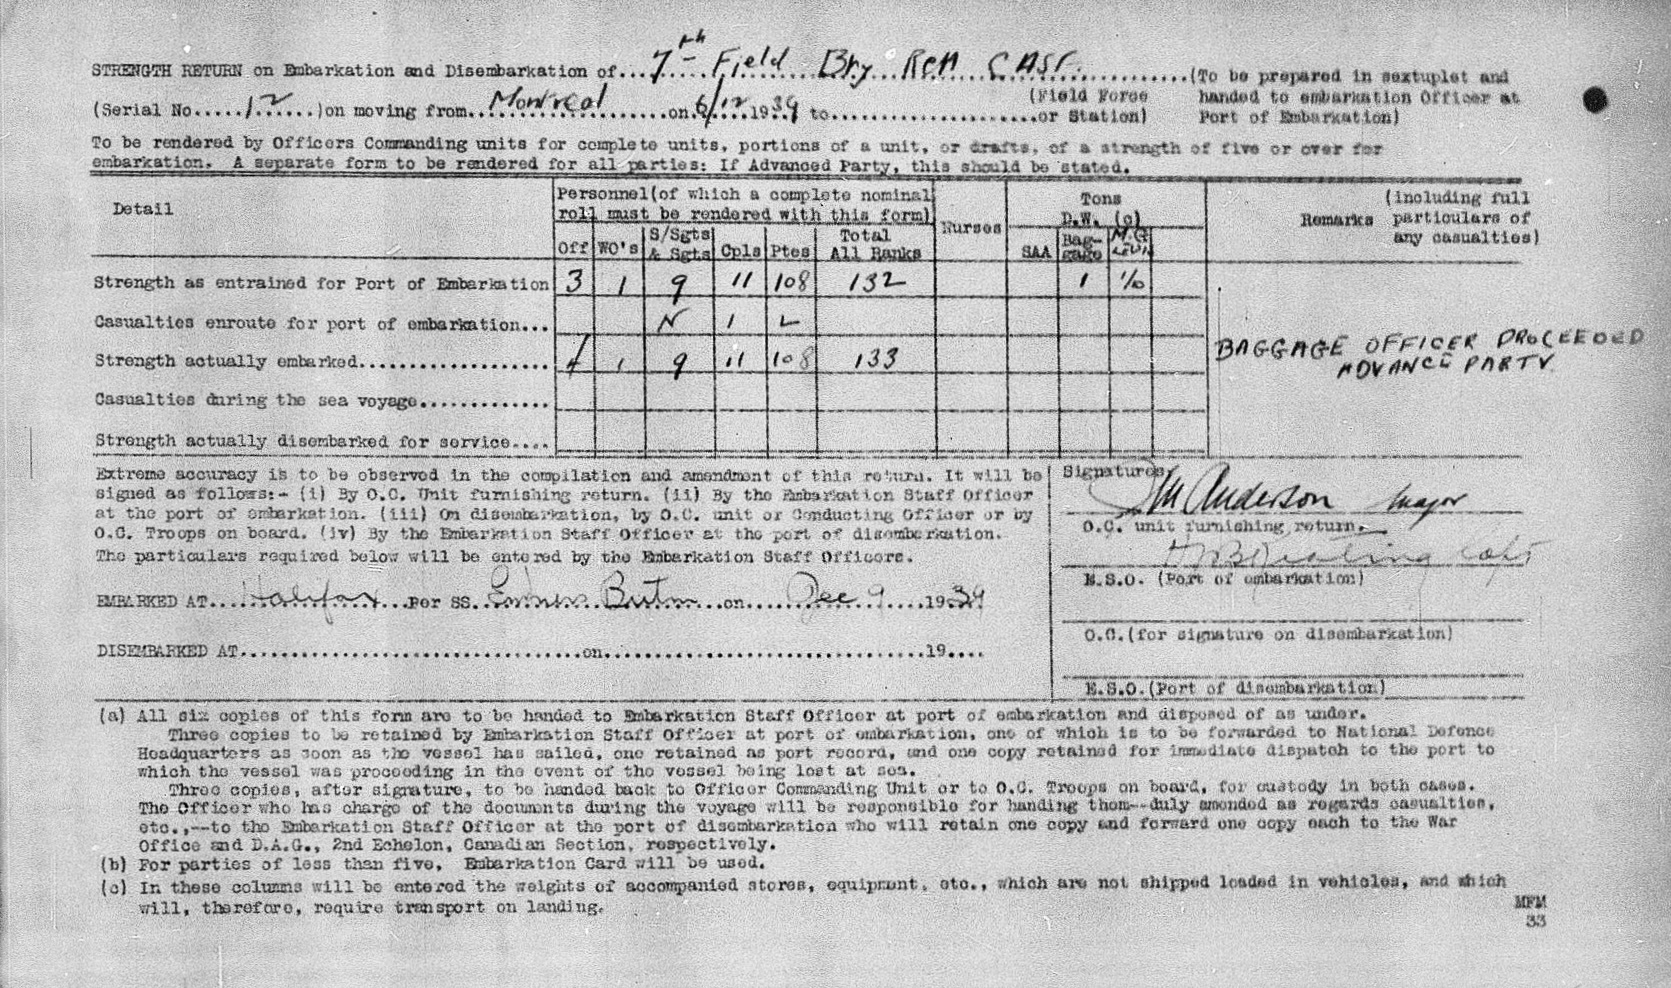 STRENGTH RETURN on Embarkation and Disembarkation of...7th Field Bty RCA CASF.....(To be prepared in sextuplet and
(Serial No.....12....)on moving from..Montreal........on.6/12..1939 to.....................(Field Force or Station) handed to embarkation Officer at
Port of Embarkation)
To be rendered by Officers Commanding units for complete units, portions of a unit, or drafts, of a strength of five or over for
embarkation. A separate form to be rendered for all parties: If Advanced Party, this should be stated.
Detail
Personnel(of which a complete nominal
roll must be rendered with this form)
Off WO's S/Sgts & Sgts Cpls Ptes Total All Ranks
Nurses
Tons
D.W. (c)
SAA Baggage
Remarks (including full
particulars of
any casualties)
Strength as entrained for Port of Embarkation 3 1 9 11 108 132 1 1/10
Casualties enroute for port of embarkation... N I L
Strength actually embarked.................... 4 1 9 11 108 133
BAGGAGE OFFICER PROCEEDED
ADVANCE PARTY
Casualties during the sea voyage.............
Strength actually disembarked for service....
Extreme accuracy is to be observed in the compilation and amendment of this return. It will be
signed as follows:- (i) By O.C. Unit furnishing return. (ii) By the Embarkation Staff Officer
at the port of embarkation. (iii) On disembarkation, by O.C. unit or Conducting Officer or by
O.C. Troops on board. (iv) By the Embarkation Staff Officer at the port of disembarkation.
The particulars required below will be entered by the Embarkation Staff Officers.
EMBARKED AT...Halifax...Per SS..Empress Britn...on.....Dec 9....1939
DISEMBARKED AT..................................on................................19....
Signatures
Anderson Major
O.C. unit furnishing return.
Keating Capt
E.S.O. (Port of embarkation)
O.C.(for signature on disembarkation)
E.S.O.(Port of disembarkation)
(a) All six copies of this form are to be handed to Embarkation Staff Officer at port of embarkation and disposed of as under.
Three copies to be retained by Embarkation Staff Officer at port of embarkation, one of which is to be forwarded to National Defence
Headquarters as soon as the vessel has sailed, one retained as port record, and one copy retained for immediate dispatch to the port to
which the vessel was proceeding in the event of the vessel being lost at sea.
Three copies, after signature, to be handed back to Officer Commanding Unit or to O.C. Troops on board, for custody in both cases.
The Officer who has charge of the documents during the voyage will be responsible for handing them--duly amended as regards casualties,
etc.,--to the Embarkation Staff Officer at the port of disembarkation who will retain one copy and forward one copy each to the War
Office and D.A.G., 2nd Echelon, Canadian Section, respectively.
(b) For parties of less than five, Embarkation Card will be used.
(c) In these columns will be entered the weights of accompanied stores, equipment, etc., which are not shipped loaded in vehicles, and which
will, therefore, require transport on landing.
MFM
33